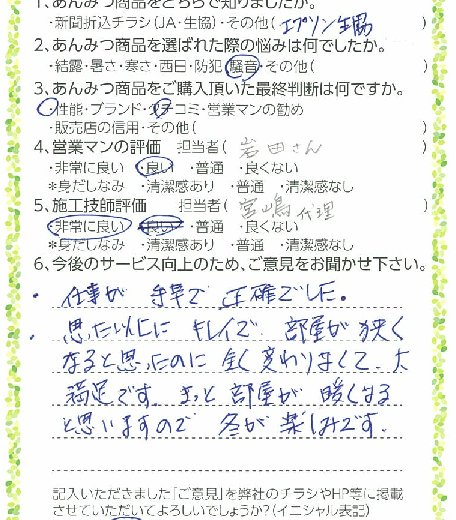 1、あんみつ商品をどちらで知りましたか。
・新聞折込チラシ(JA・生協)・その他( エプソン生協
2、あんみつ商品を選ばれた際の悩みは何でしたか。
・結露・暑さ・寒さ・西日・防犯・騒音・その他( )
3、あんみつ商品をご購入頂いた最終判断は何ですか。
・性能・ブランド・クチコミ・営業マンの勧め
・販売店の信用・その他( )
4、営業マンの評価 担当者( 岩田さん )
・非常に良い ・良い ・普通 ・良くない
*身だしなみ ・清潔感あり ・普通 ・清潔感なし
5、施工技師評価 担当者( 宮嶋代理 )
・非常に良い ・良い ・普通 ・良くない
*身だしなみ ・清潔感あり ・普通 ・清潔感なし
6、今後のサービス向上のため、ご意見をお聞かせ下さい。
・仕事が 手早で 正確でした。
・思った以上に キレイで 部屋が 狭く
なると思ったのに 全く変わりなくて、大
満足です。きっと 部屋が 暖くなる
と思いますので 冬が 楽しみです。
記入いただきました「ご意見」を弊社のチラシやHP等に掲載
させていただいてよろしいでしょうか?(イニシャル表記)